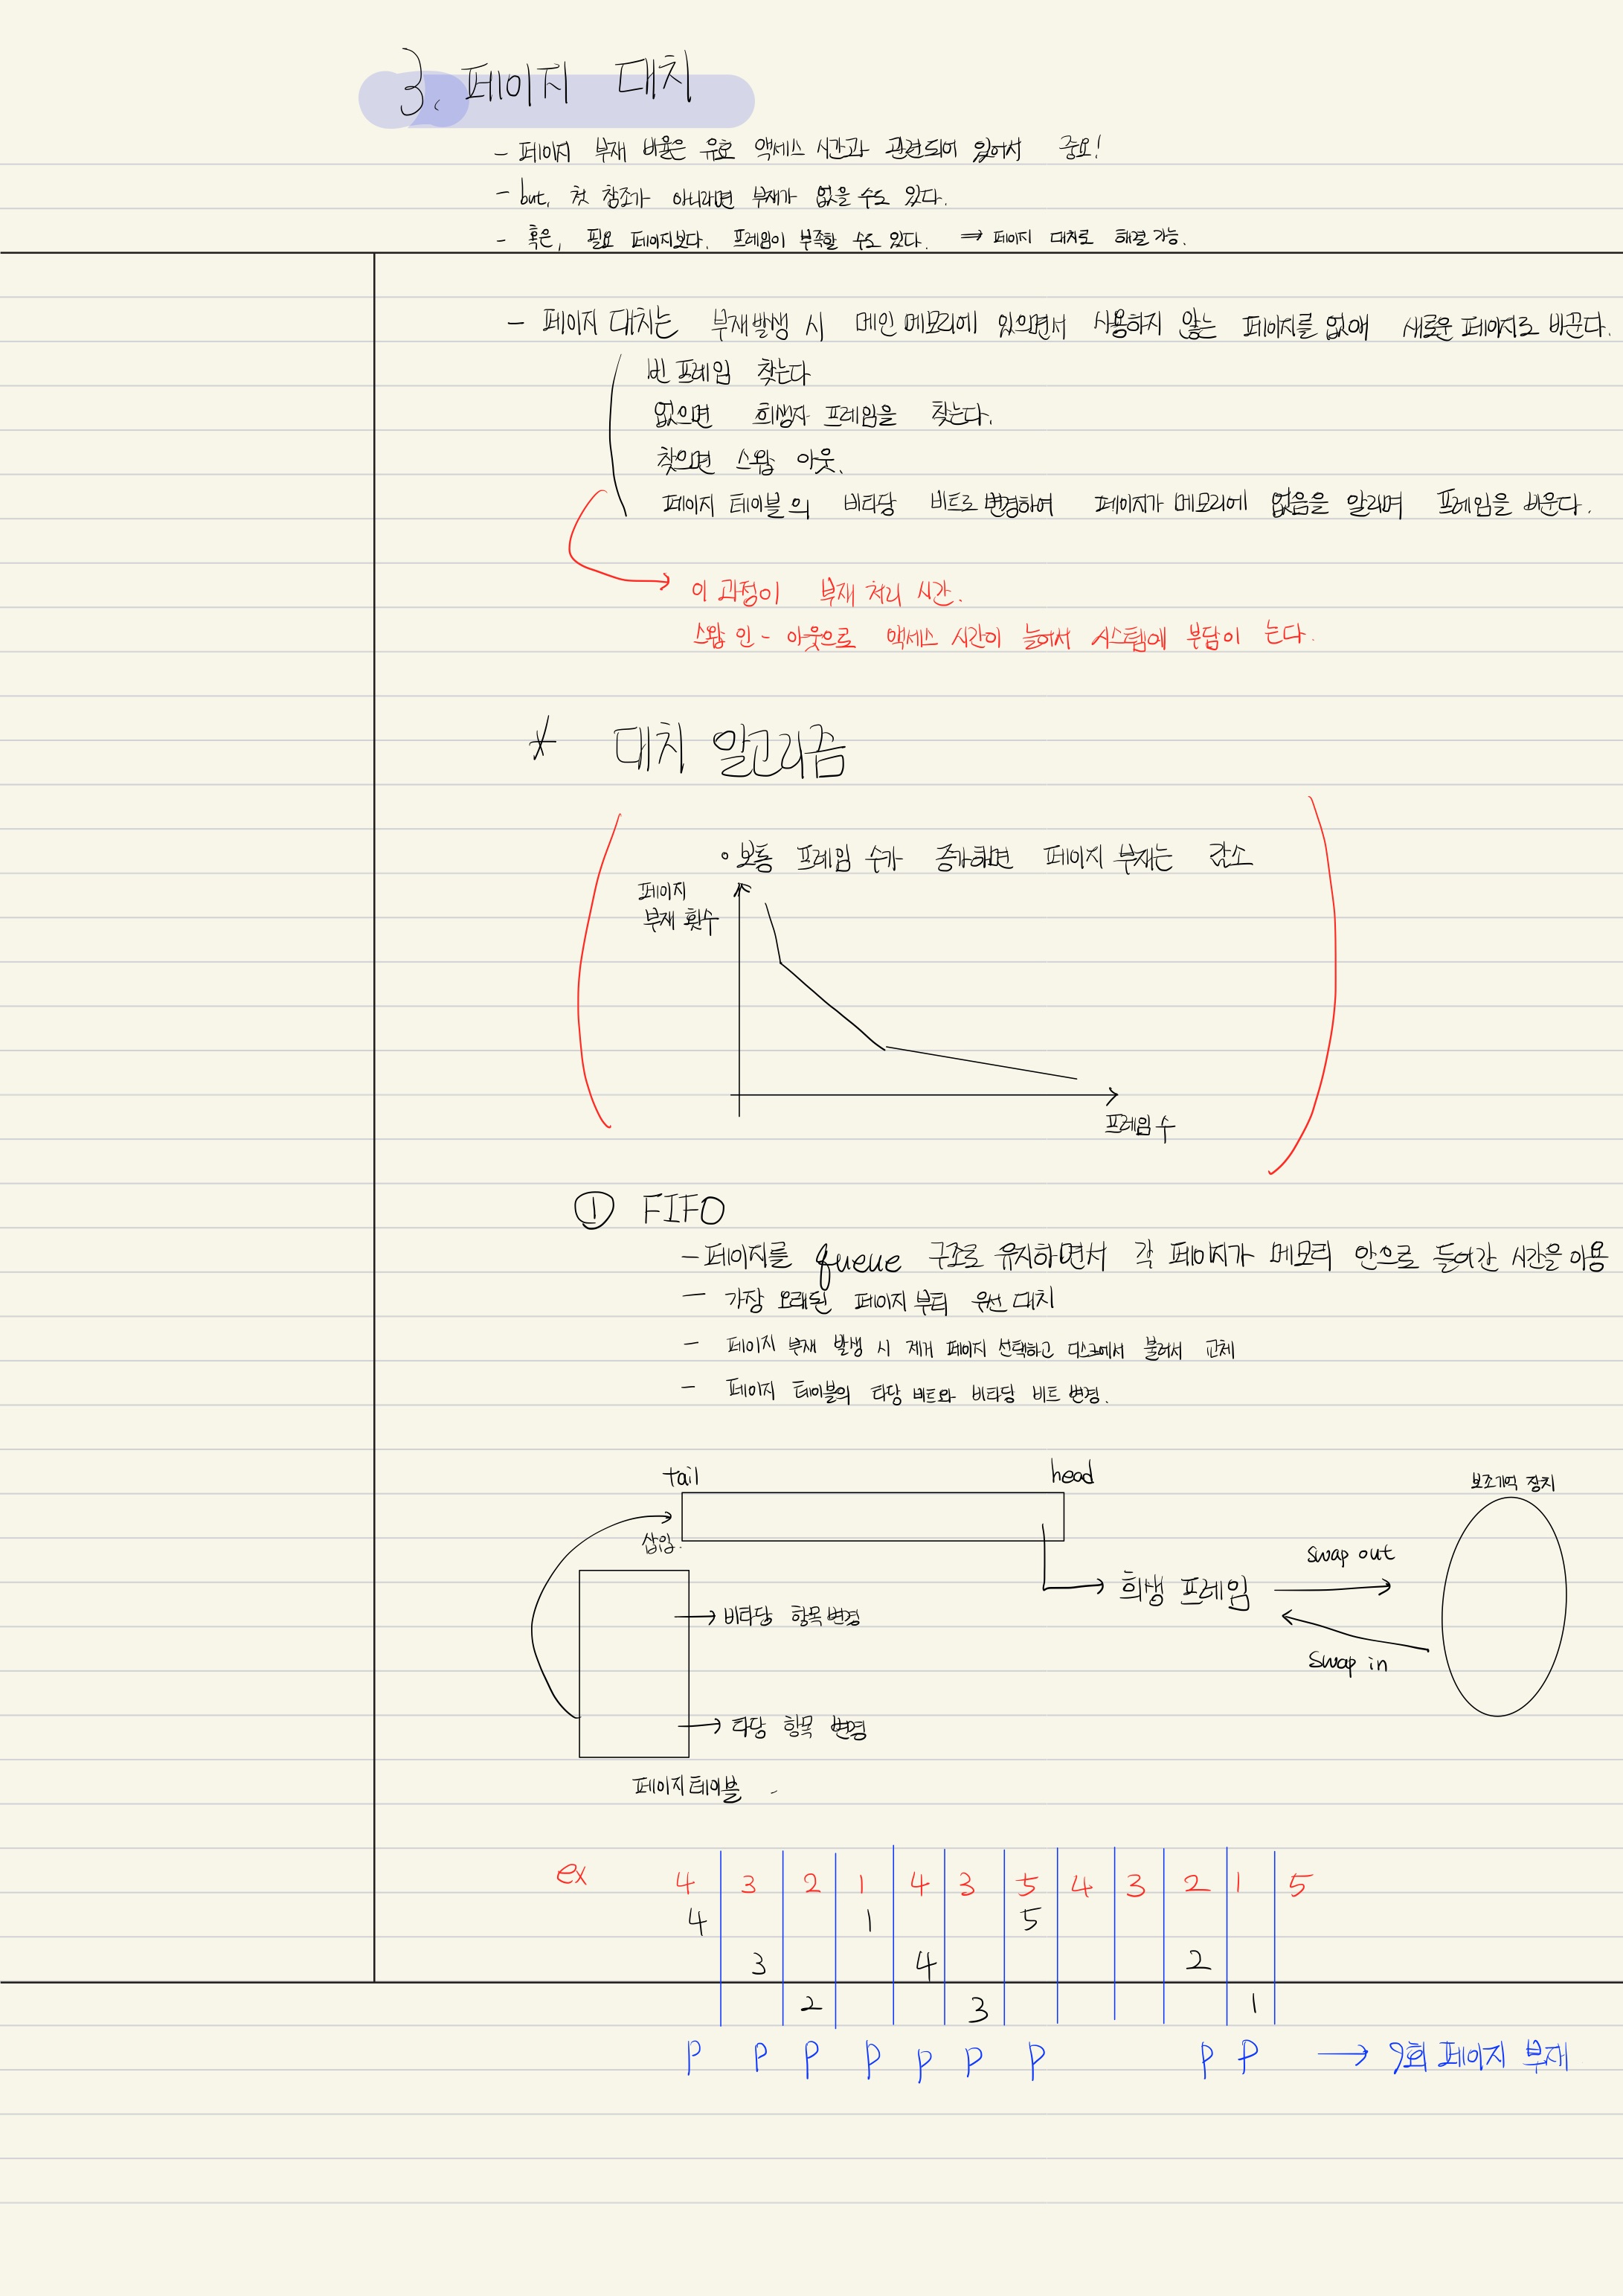 3. 페이지 대치
- 페이지 부재 비율은 유효 액세스 시간과 관련되어 있어서 중요!
- but, 첫 참조가 아니라면 부재가 없을 수도 있다.
- 혹은, 필요 페이지보다. 프레임이 부족할 수도 있다. ⇒ 페이지 대치로 해결 가능.
- 페이지 대치는 부재발생 시 메인 메모리에 있으면서 사용하지 않는 페이지를 없애 새로운 페이지로 바꾼다.
빈 프레임 찾는다
없으면 희생자 프레임을 찾는다.
찾으면 스왑 아웃.
페이지 테이블의 비타당 비트로 변경하여 페이지가 메모리에 없음을 알리며 프레임을 비운다.
이 과정이 부재 처리 시간.
스왑 인 - 아웃으로 액세스 시간이 늘어서 시스템에 부담이 는다.
* 대치 알고리즘
• 보통 프레임 수가 증가하면 페이지 부재는 감소
페이지
부재 횟수
프레임 수
① FIFO
- 페이지를 queue 구조로 유지하면서 각 페이지가 메모리 안으로 들어간 시간을 이용
- 가장 오래된 페이지부터 우선 대치
- 페이지 부재 발생 시 제거 페이지 선택하고 디스크에서 불러서 교체
- 페이지 테이블의 타당 비트와 비타당 비트 변경.
tail head 보조기억 장치
삽입.
swap out
희생 프레임
비타당 항목 변경
swap in
타당 항목 변경
페이지 테이블 -
ex 4 3 2 1 4 3 5 4 3 2 1 5
4 1 5
3 4 2
2 3 1
P P P P P P P P P → 9회 페이지 부재